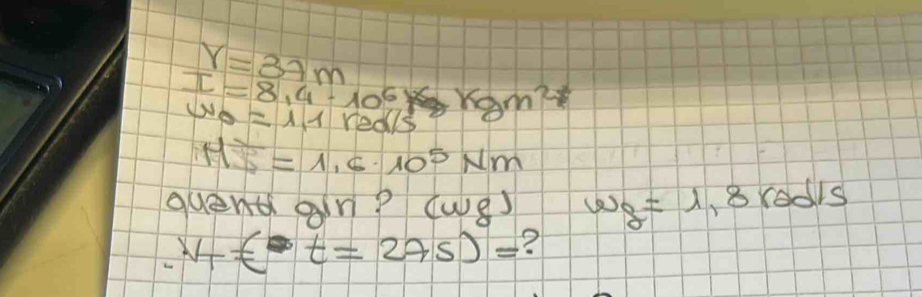 r = 37 m
I = 8,4 · 10⁶ kgm²
ω₀ = 1,1 rad/s
M = 1,6 · 10⁵ Nm
quanti giri? (ωf) ωf = 1,8 rad/s
vf (t = 27s) = ?